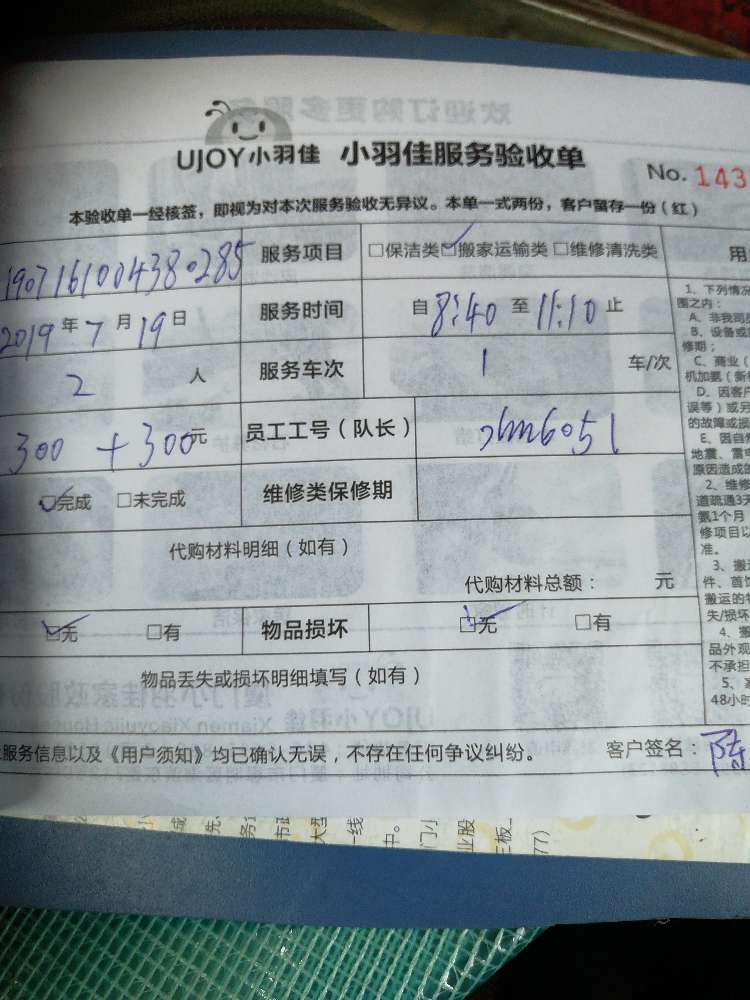 UJOY小羽佳 小羽佳服务验收单
No. 143
本验收单一经核签，即视为对本次服务验收无异议。本单一式两份，客户留存一份（红）
1907161004380285 服务项目 □保洁类 ☑搬家运输类 □维修清洗类
2019年7月19日 服务时间 自8:40至11:10止
2人 服务车次 1 车/次
300+300元 员工工号（队长）
☑完成 □未完成 维修类保修期
代购材料明细（如有）
代购材料总额： 元
☑无 □有 物品损坏 ☑无 □有
物品丢失或损坏明细填写（如有）
服务信息以及《用户须知》均已确认无误，不存在任何争议纠纷。
客户签名：陈
用
1、下列情况
围之内：
A、非我司
B、设备或
修期；
C、商业（
机加氨（新
D、因客户
误等）或另
的故障或损
E、因自然
地震、雷电
原因造成的
2、维修
道疏通3天
氨1个月
修项目以
准。
3、搬运
件、首饰
搬运的物
失/损坏
4、搬
品外观
不承担
5、家
48小时